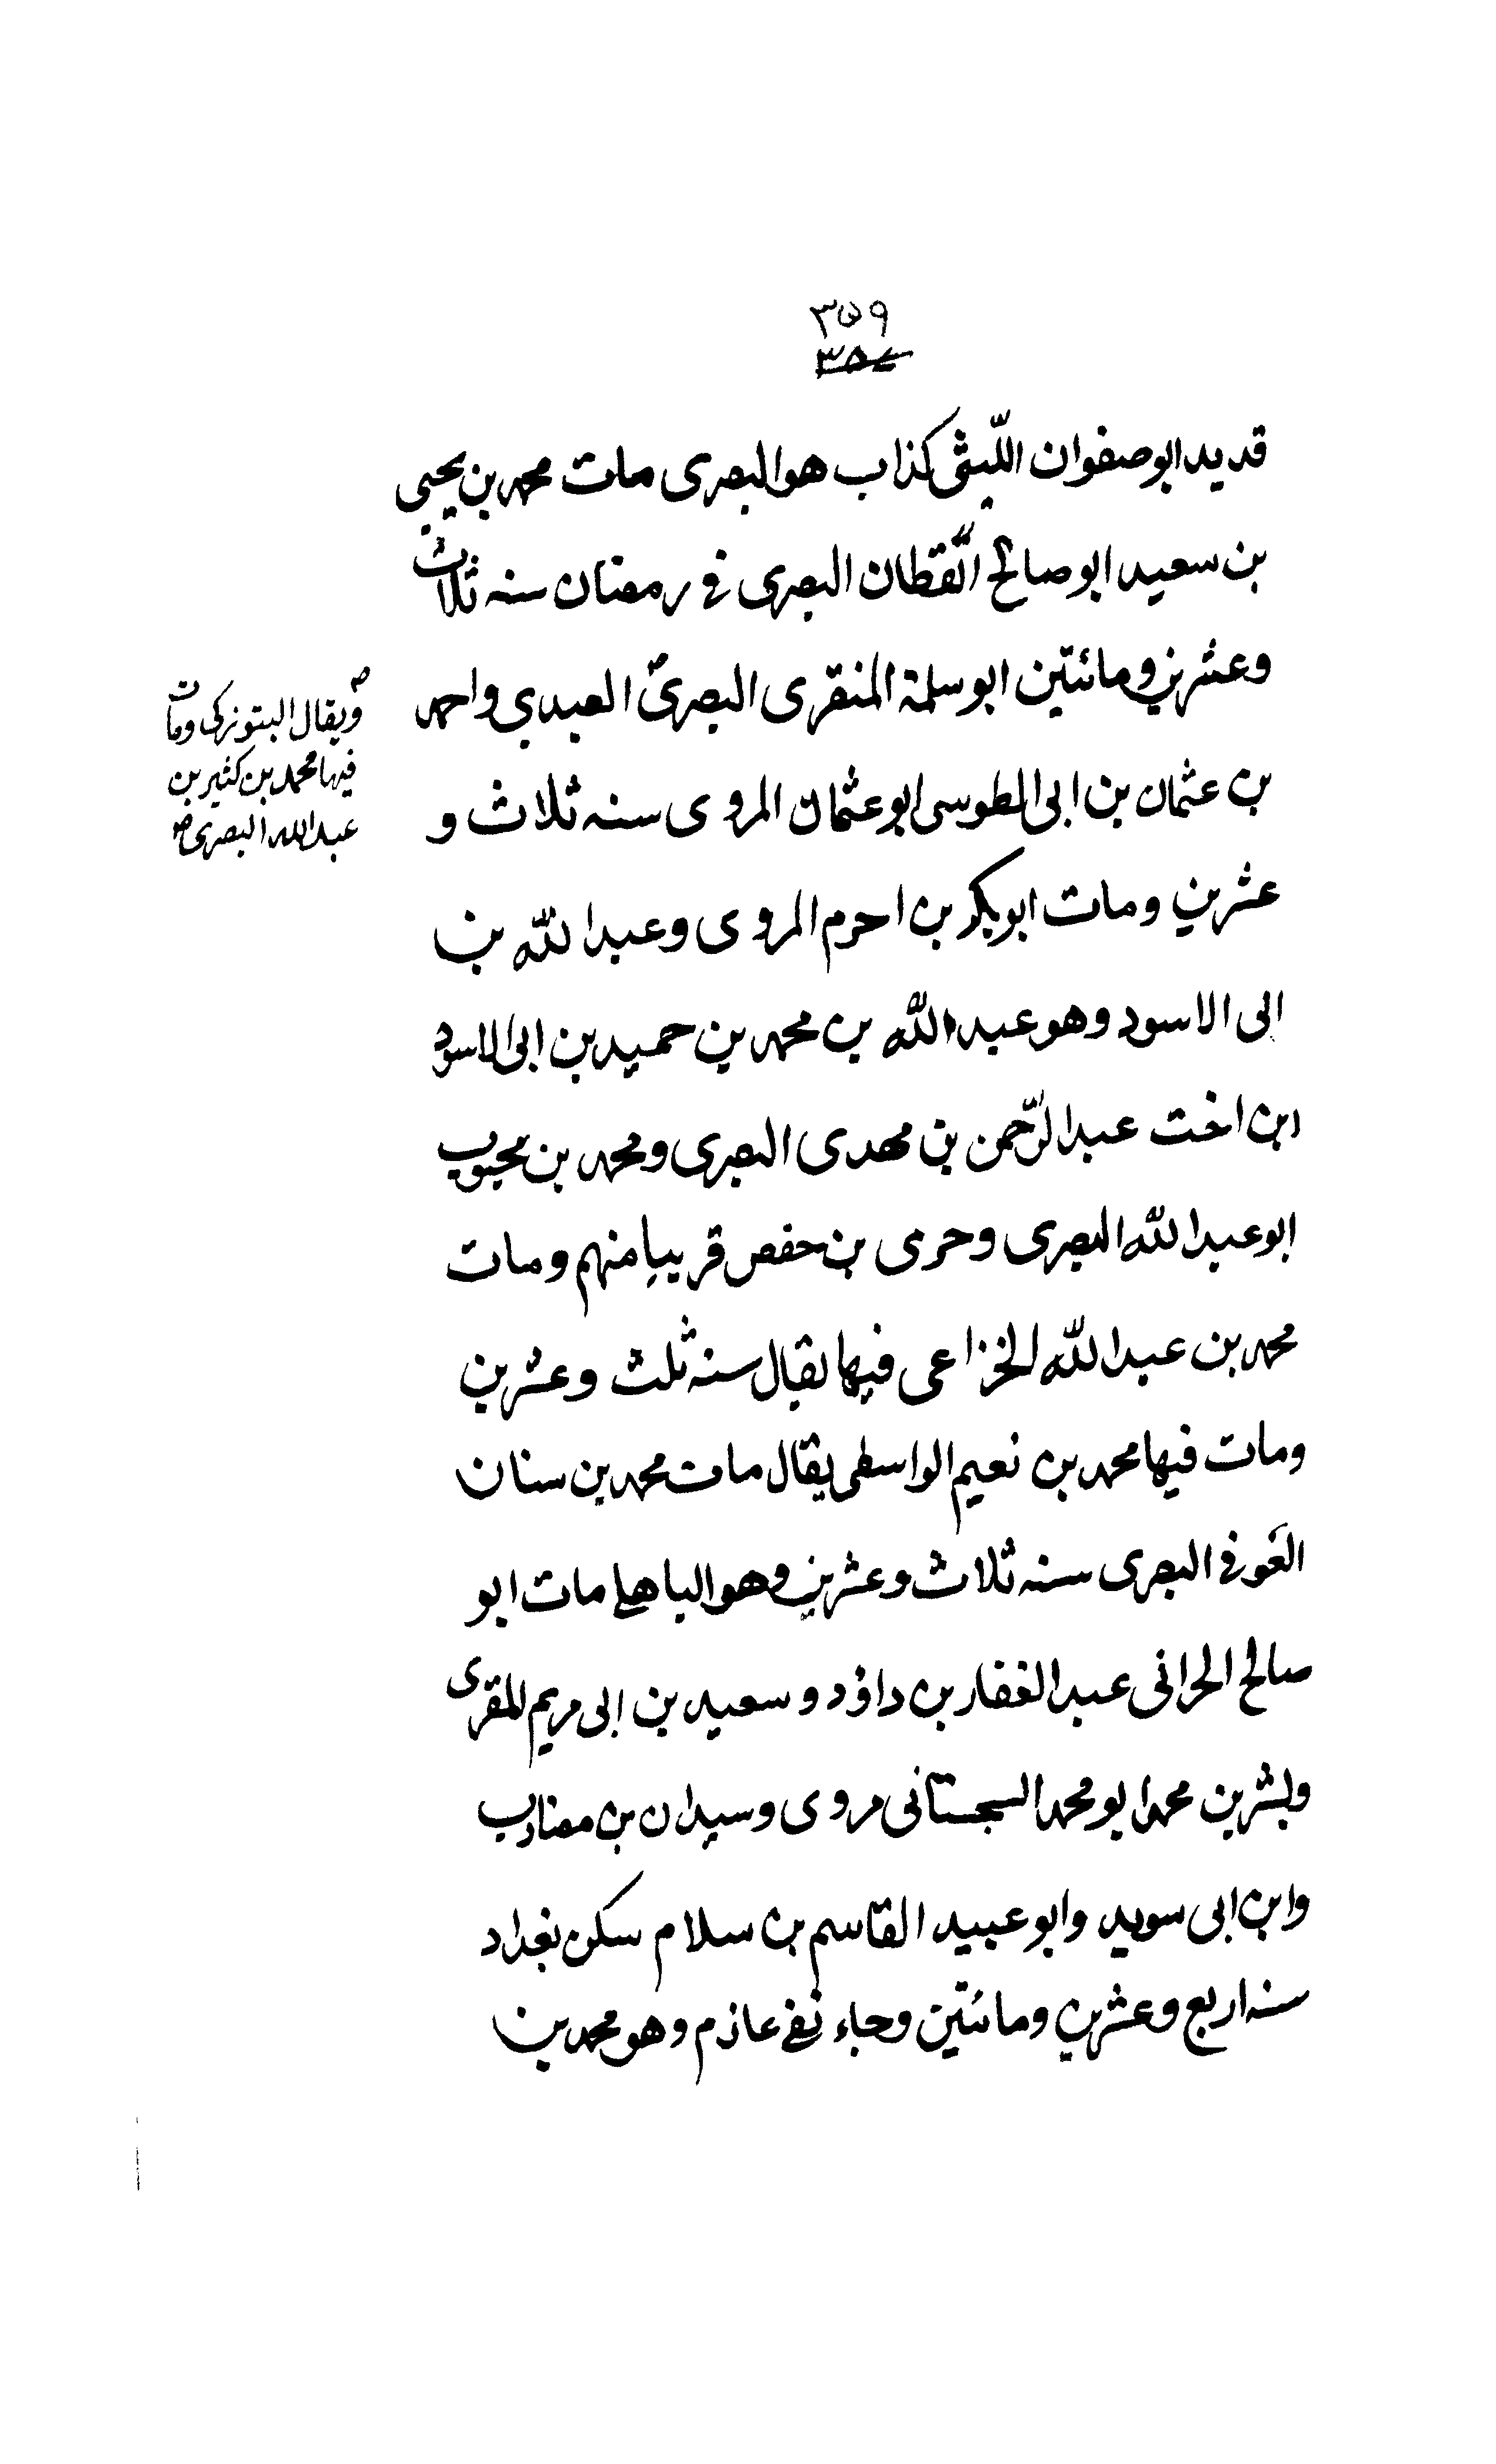 ٣٥٩
قديد ابو صفوان اللّيثى كذاب هو البصرى مات محمد بن يحيى
بن سعيد ابو صالح القّطان البصرى فى رمضان سنه ثلاث
وعشرين ومائتين ابو سلمة المنقرى البصرى العبدي واحمد
بن عثمان بن ابى الطوسى ابو عثمان المروى سنه ثلاث و
عشرين ومات ابو بكر بن احرم المروى وعبد اللّه بن
ابى الاسود وهو عبد اللّه بن محمد بن حميد بن ابى الاسود
ابن اخت عبد الرّحمن بن مهدى البصرى ومحمد بن محبوب
ابو عبد اللّه البصرى وحرمى بن حفص قريبا منهم ومات
محمد بن عبد اللّه الخزاعى فيها يقال سنه ثلث وعشرين
ومات فيها محمد بن نعيم الواسطى يقال مات محمد بن سنان
العَوفى البصرى سنه ثلاث وعشرين وهو الباهلى مات ابو
صالح الحرانى عبد الغفار بن داؤد وسعيد بن ابى مريم المقرى
وبشر بن محمد ابو محمد السجستانى مروى وسيدان بن مضارب
وابن ابى سويد وابو عبيد القاسم بن سلام سكن بغداد
سنه اربع وعشرين ومائتين وجاء نعى عازم وهو محمد بن
ويقال التبوزكى ومات
فيها محمد بن كثير بن
عبد الله البصرى